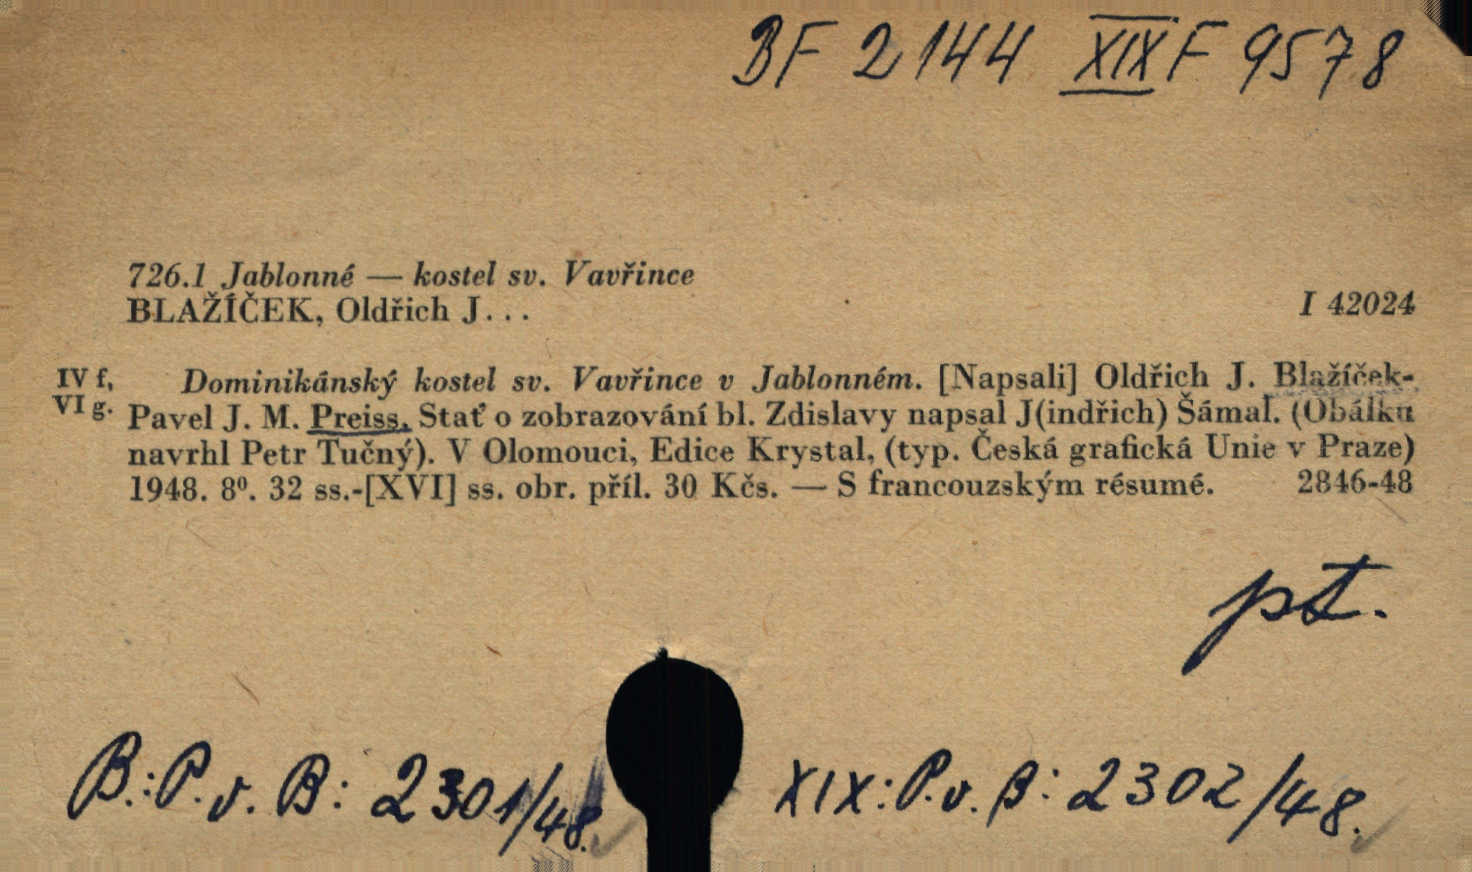 BF 2144 XIX F 9578
726.1 Jablonné — kostel sv. Vavřince
BLAŽÍČEK, Oldřich J... I 42024
IV f, Dominikánský kostel sv. Vavřince v Jablonném. [Napsali] Oldřich J. Blažíček-
VI g. Pavel J. M. Preiss. Stať o zobrazování bl. Zdislavy napsal J(indřich) Šámal. (Obálku
navrhl Petr Tučný). V Olomouci, Edice Krystal, (typ. Česká grafická Unie v Praze)
1948. 8⁰. 32 ss.-[XVI] ss. obr. příl. 30 Kčs. — S francouzským résumé. 2846-48
pt.
B.: P. v. B: 2301/48. XIX: P. v. B: 2302/48.